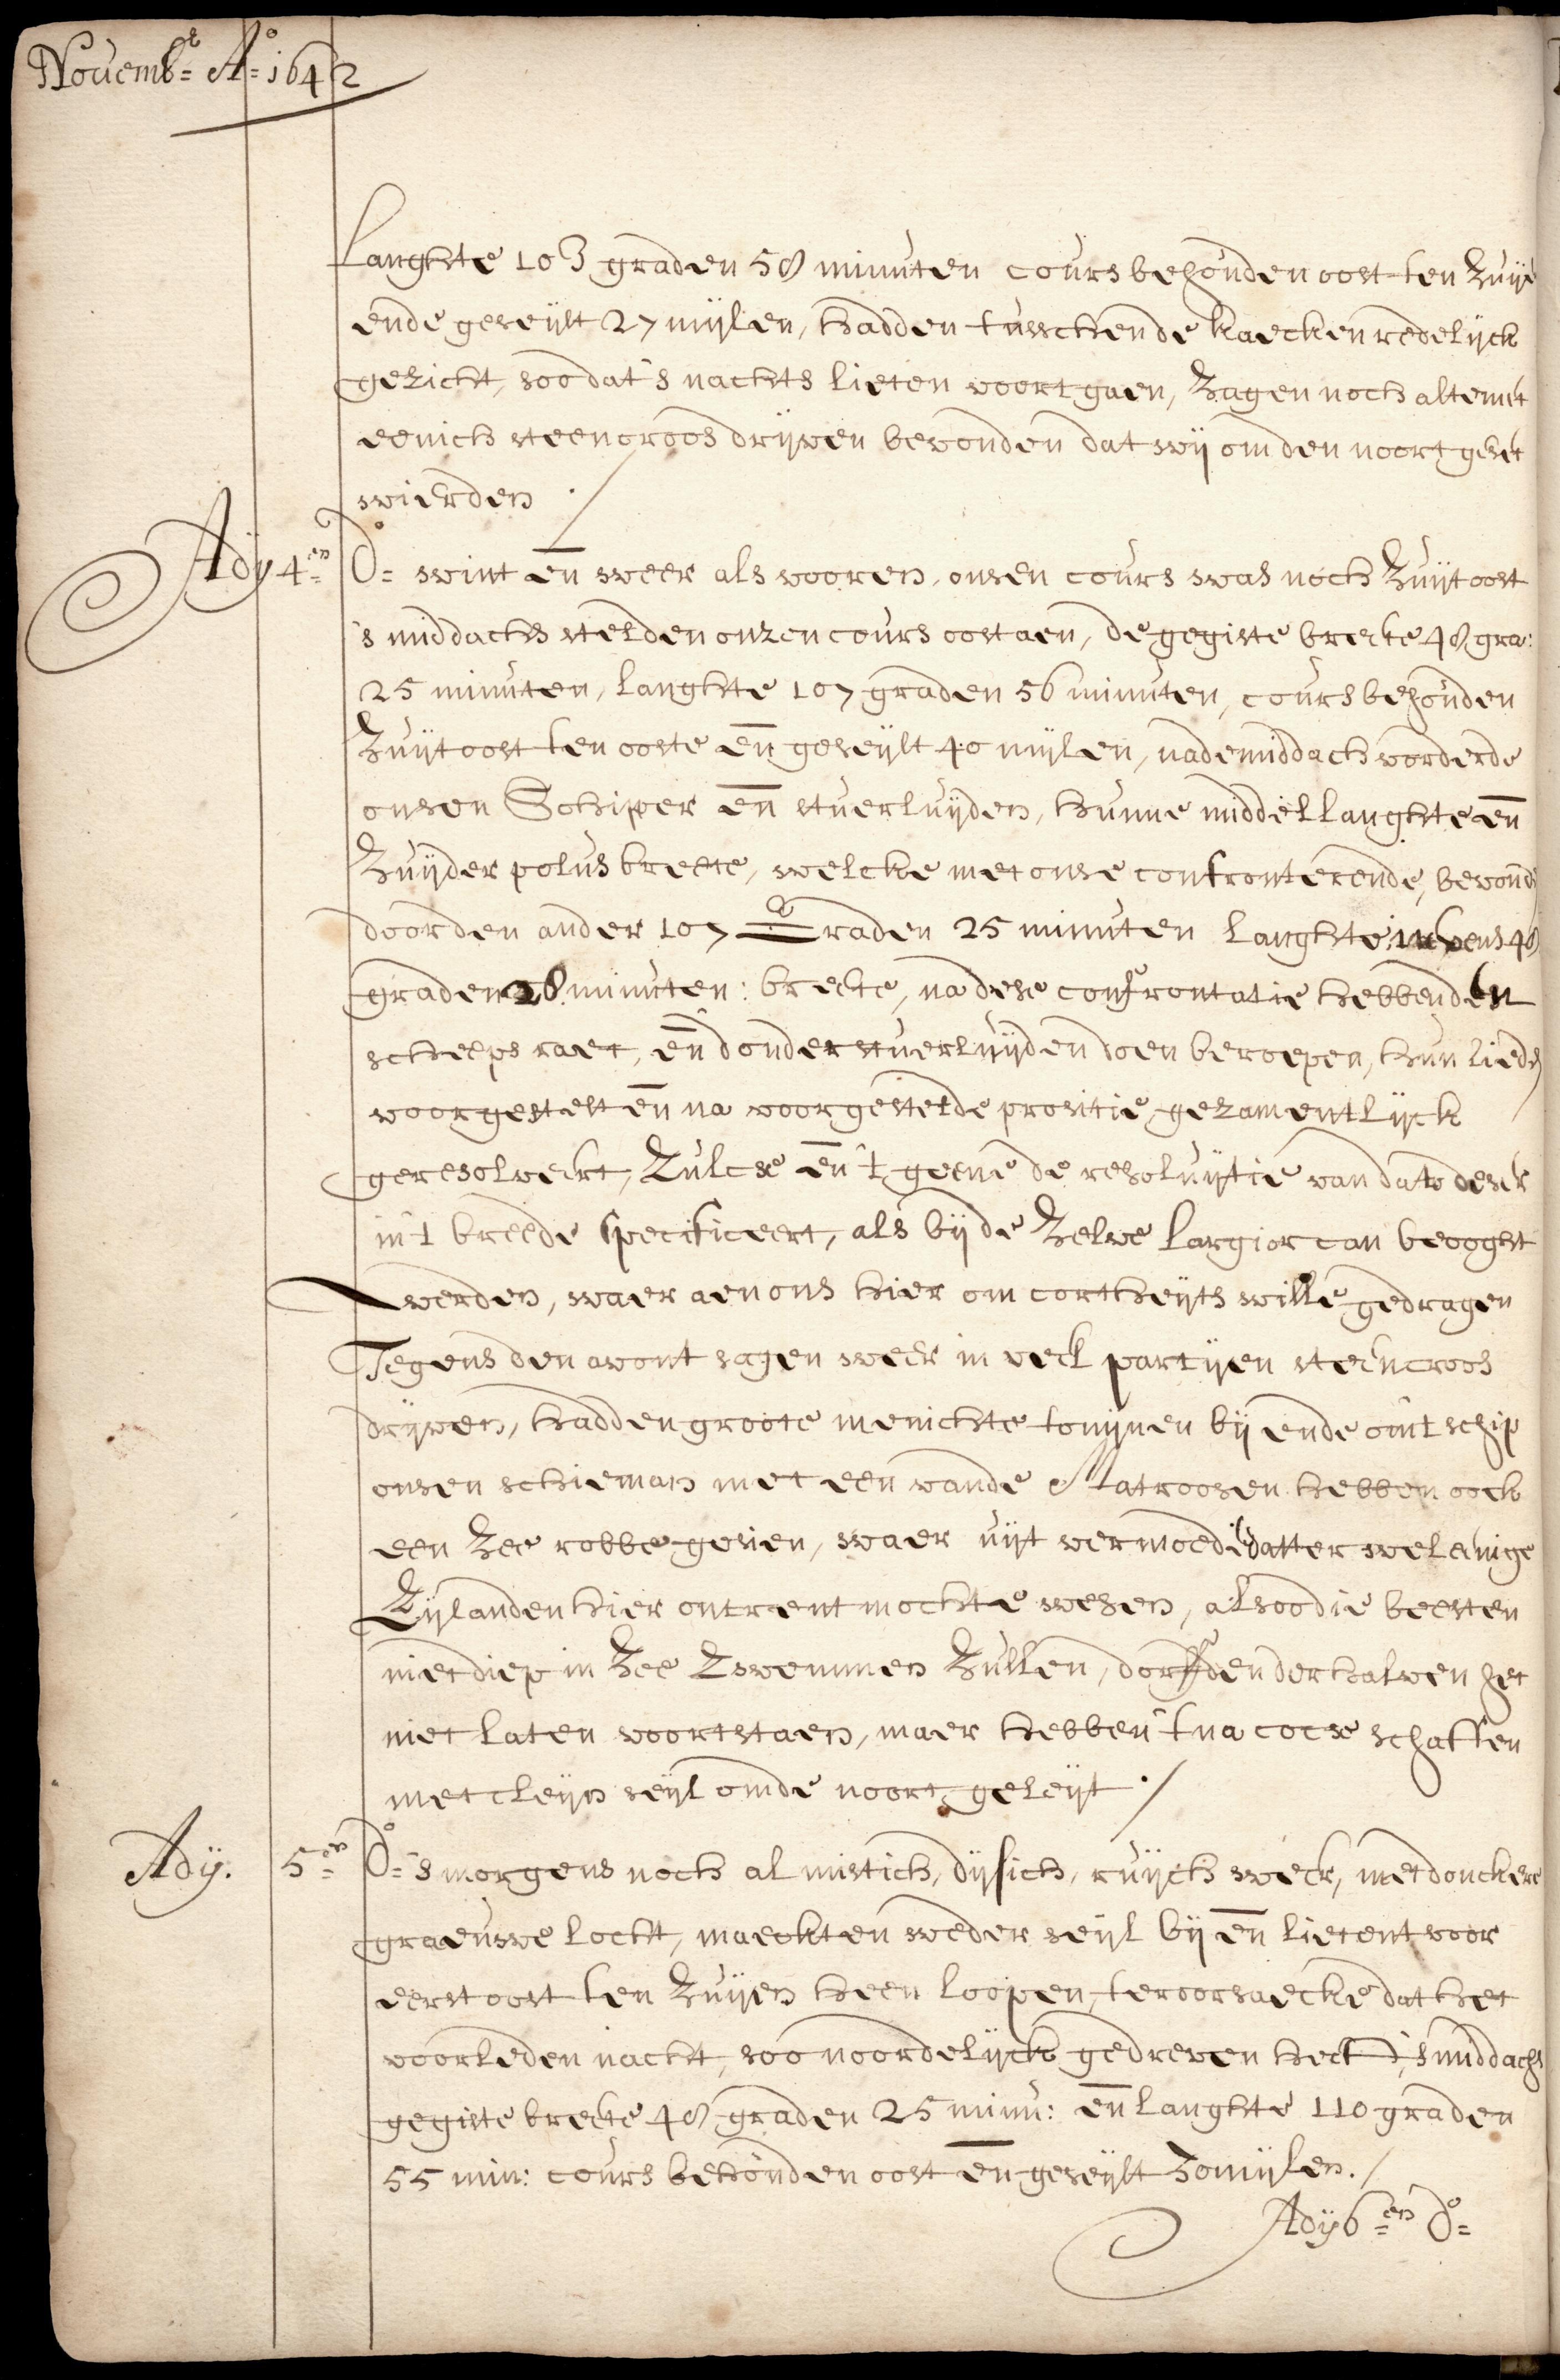 Novemb^r= A^o= 1642
langhte 103 graden 58 minuten cours behouden oost ten Zuÿd
ende geseÿlt 27 mijlen, hadden tusschende haecken redelijck
gezicht, soo dat 's nachts lieten voort gaen, Zagen noch altemet
eenich steencroos drijven bevonden dat wij om den noort geset
wierden ./
Adÿ 4^en= d^o= wint en̄ weer als vooren, onsen cours was noch Zuijt oost
's middachs stelden onzen cours oost aen, de gegiste breete 48 gra:
25 minuten, langhte 107 graden 56 minuten, cours behouden
Zuijt oost ten ooste en̄ geseijlt 40 mijlen, nademiddach vorderde
onsen Schiper en̄ stuerluijden, hunne middel langhte en̄
Zuijder polus breete, welcke met onse confronterende, bevond
door den ander 107 Graden 25 minuten langhte, nevens 48
graden 28 minuten: breete, na dese confrontatie hebbenden
scheeps raet, en̄ d'onderstuerluijden doen beroepen, hun lied
voorgestelt en̄ na voorgestelde prositie gezamentlijck
geresolveert, Zulcx en̄ 't geene de resoluijtie van dato deser
in 't breede specificeert, als bij de Zelve largior can beooght
werden, waer aen ons hier om cortheijts wille gedragen
Tegens den avont sagen weer in veel partijen steencroos
drijven, hadden groote menichte tonijnen bij ende om 't schip
onsen schieman met een vande Matroosen hebben oock
een Zee robbe gesien, waer uijt vermoede datter wel eenige
Eijlanden hier ontrent mochte wesen, alsoo die beesten
niet diep in Zee Zwemmen Zullen, dorffden derhalven het
niet laten voortstaen, maer hebben 't na cocx schaften
met cleijn seijl omde noort geleijt ./
Adÿ. 5^en= d^o= 's morgens noch al mistich, dijsich, ruijch weer, met donckere
graeuwe locht, maeckten weder seijl bij en̄ lieten 't voor
eerst oost ten Zuijen heen loopen, ter oorsaecke dat het
voorleden nacht, soo noordelijck gedreven heeft, 's middachs
gegiste breete 48 graden 25 minu: en̄ langhte 110 graden
55 min: cours behouden oost en̄ geseijlt 30 mijlen. /
Adij 6^en= d^o=